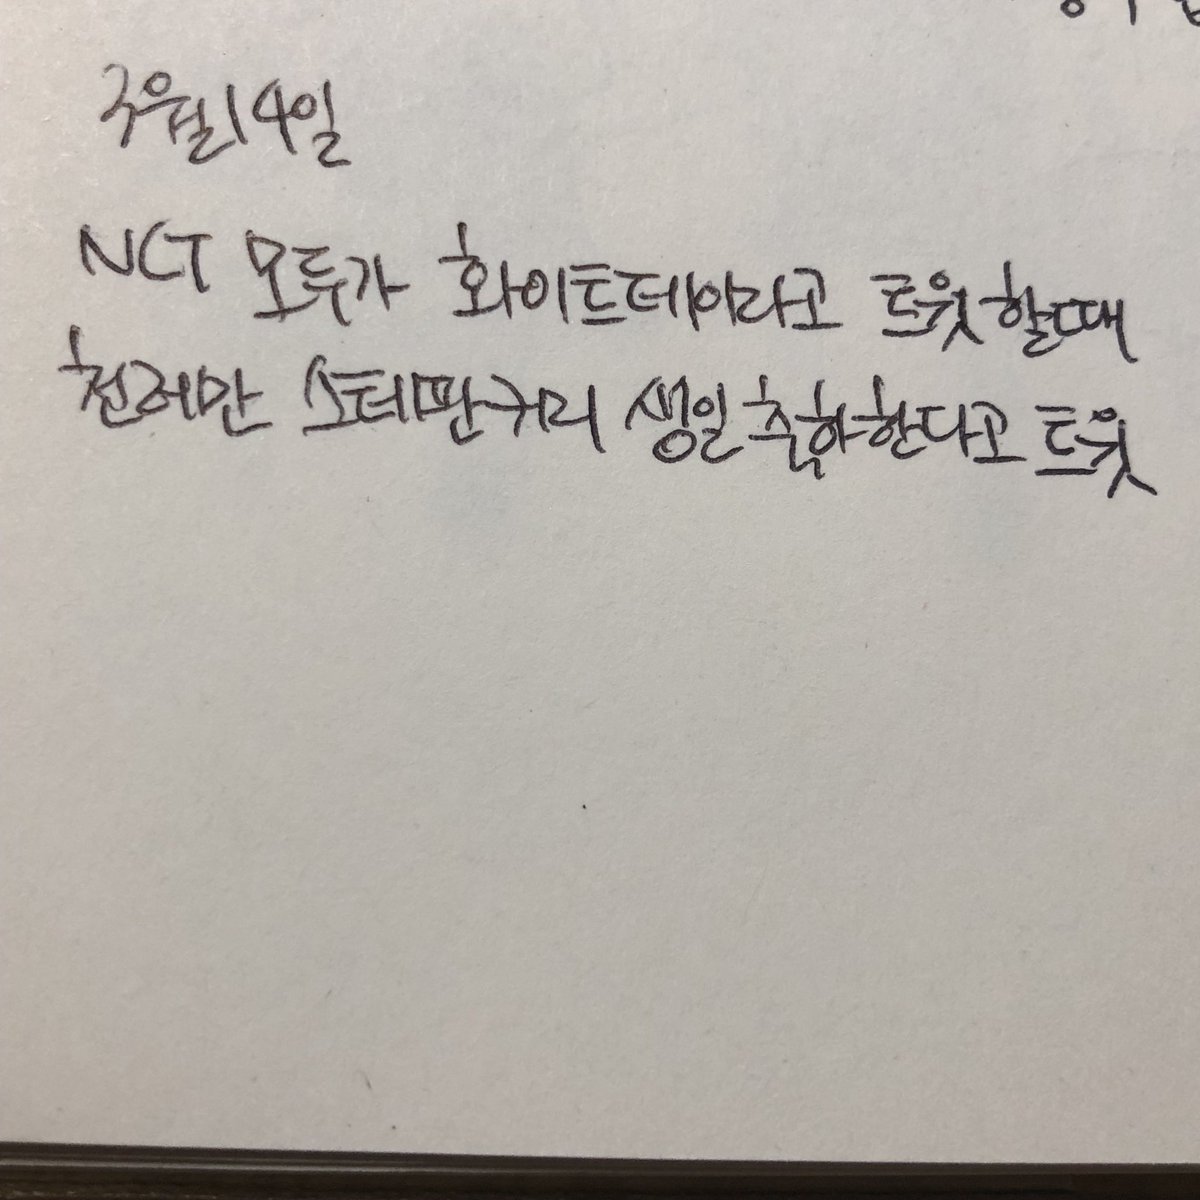 3월14일
NCT 모두가 화이트데이라고 트윗할때
천러만 스테판커리 생일축하한다고 트윗